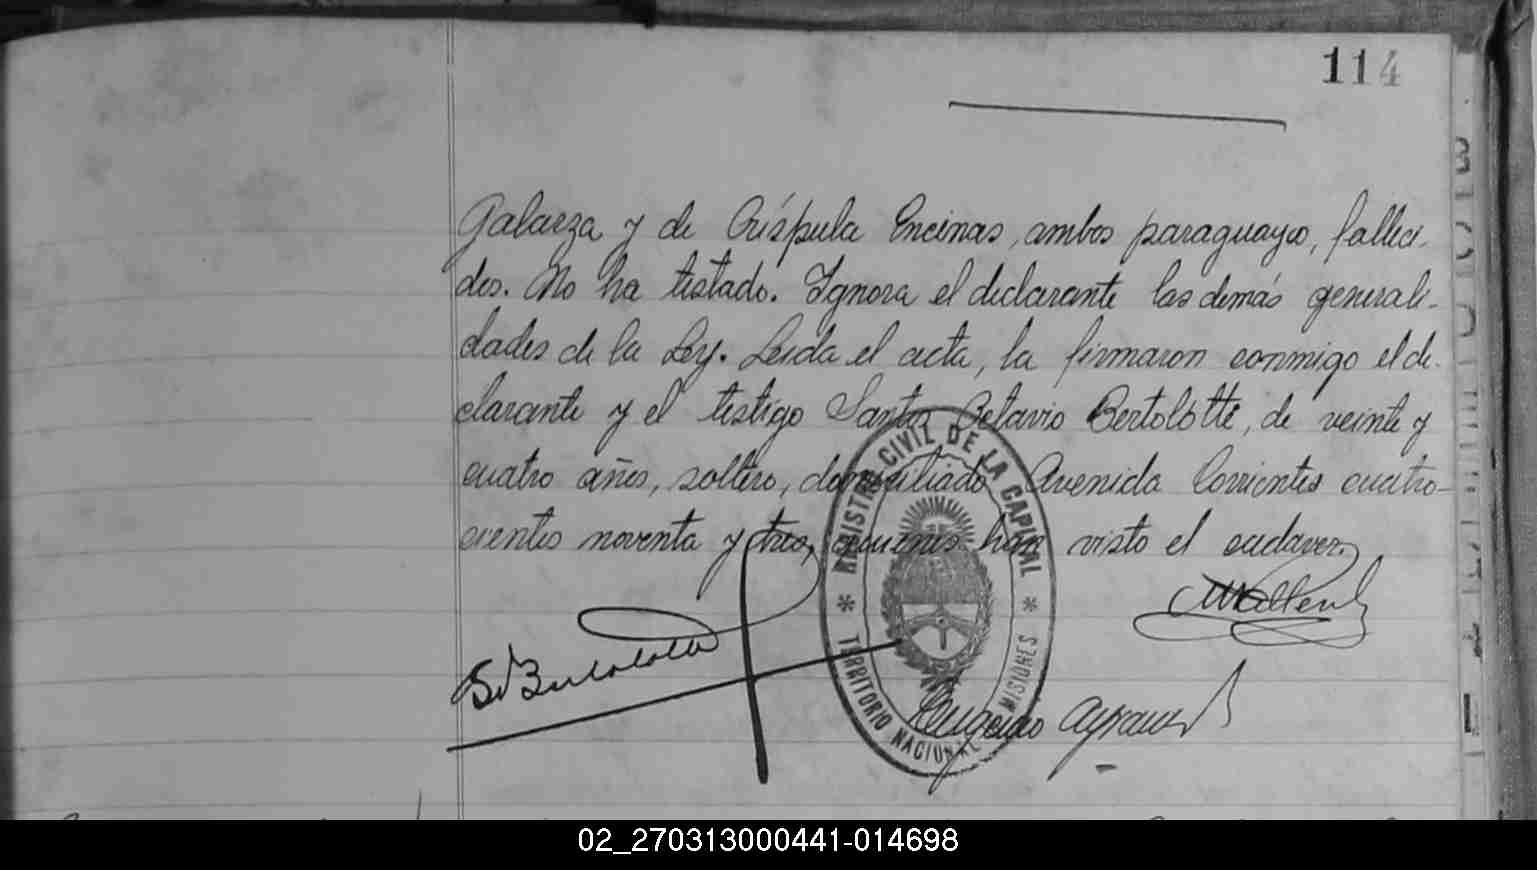 114
Galarza y de Críspula Encinas, ambos paraguayos, falleci-
dos. No ha testado. Ignora el declarante las demás generali-
dades de la Ley. Leida el acta, la firmaron conmigo el de-
clarante y el testigo Santos Octavio Bertolotti, de veinte y
cuatro años, soltero, domiciliado Avenida Corrientes cuatro-
cientos noventa y tres, quienes han visto el cadaver.
REGISTRO CIVIL DE LA CAPITAL
TERRITORIO NACIONAL MISIONES
Eugenio
02_270313000441-014698